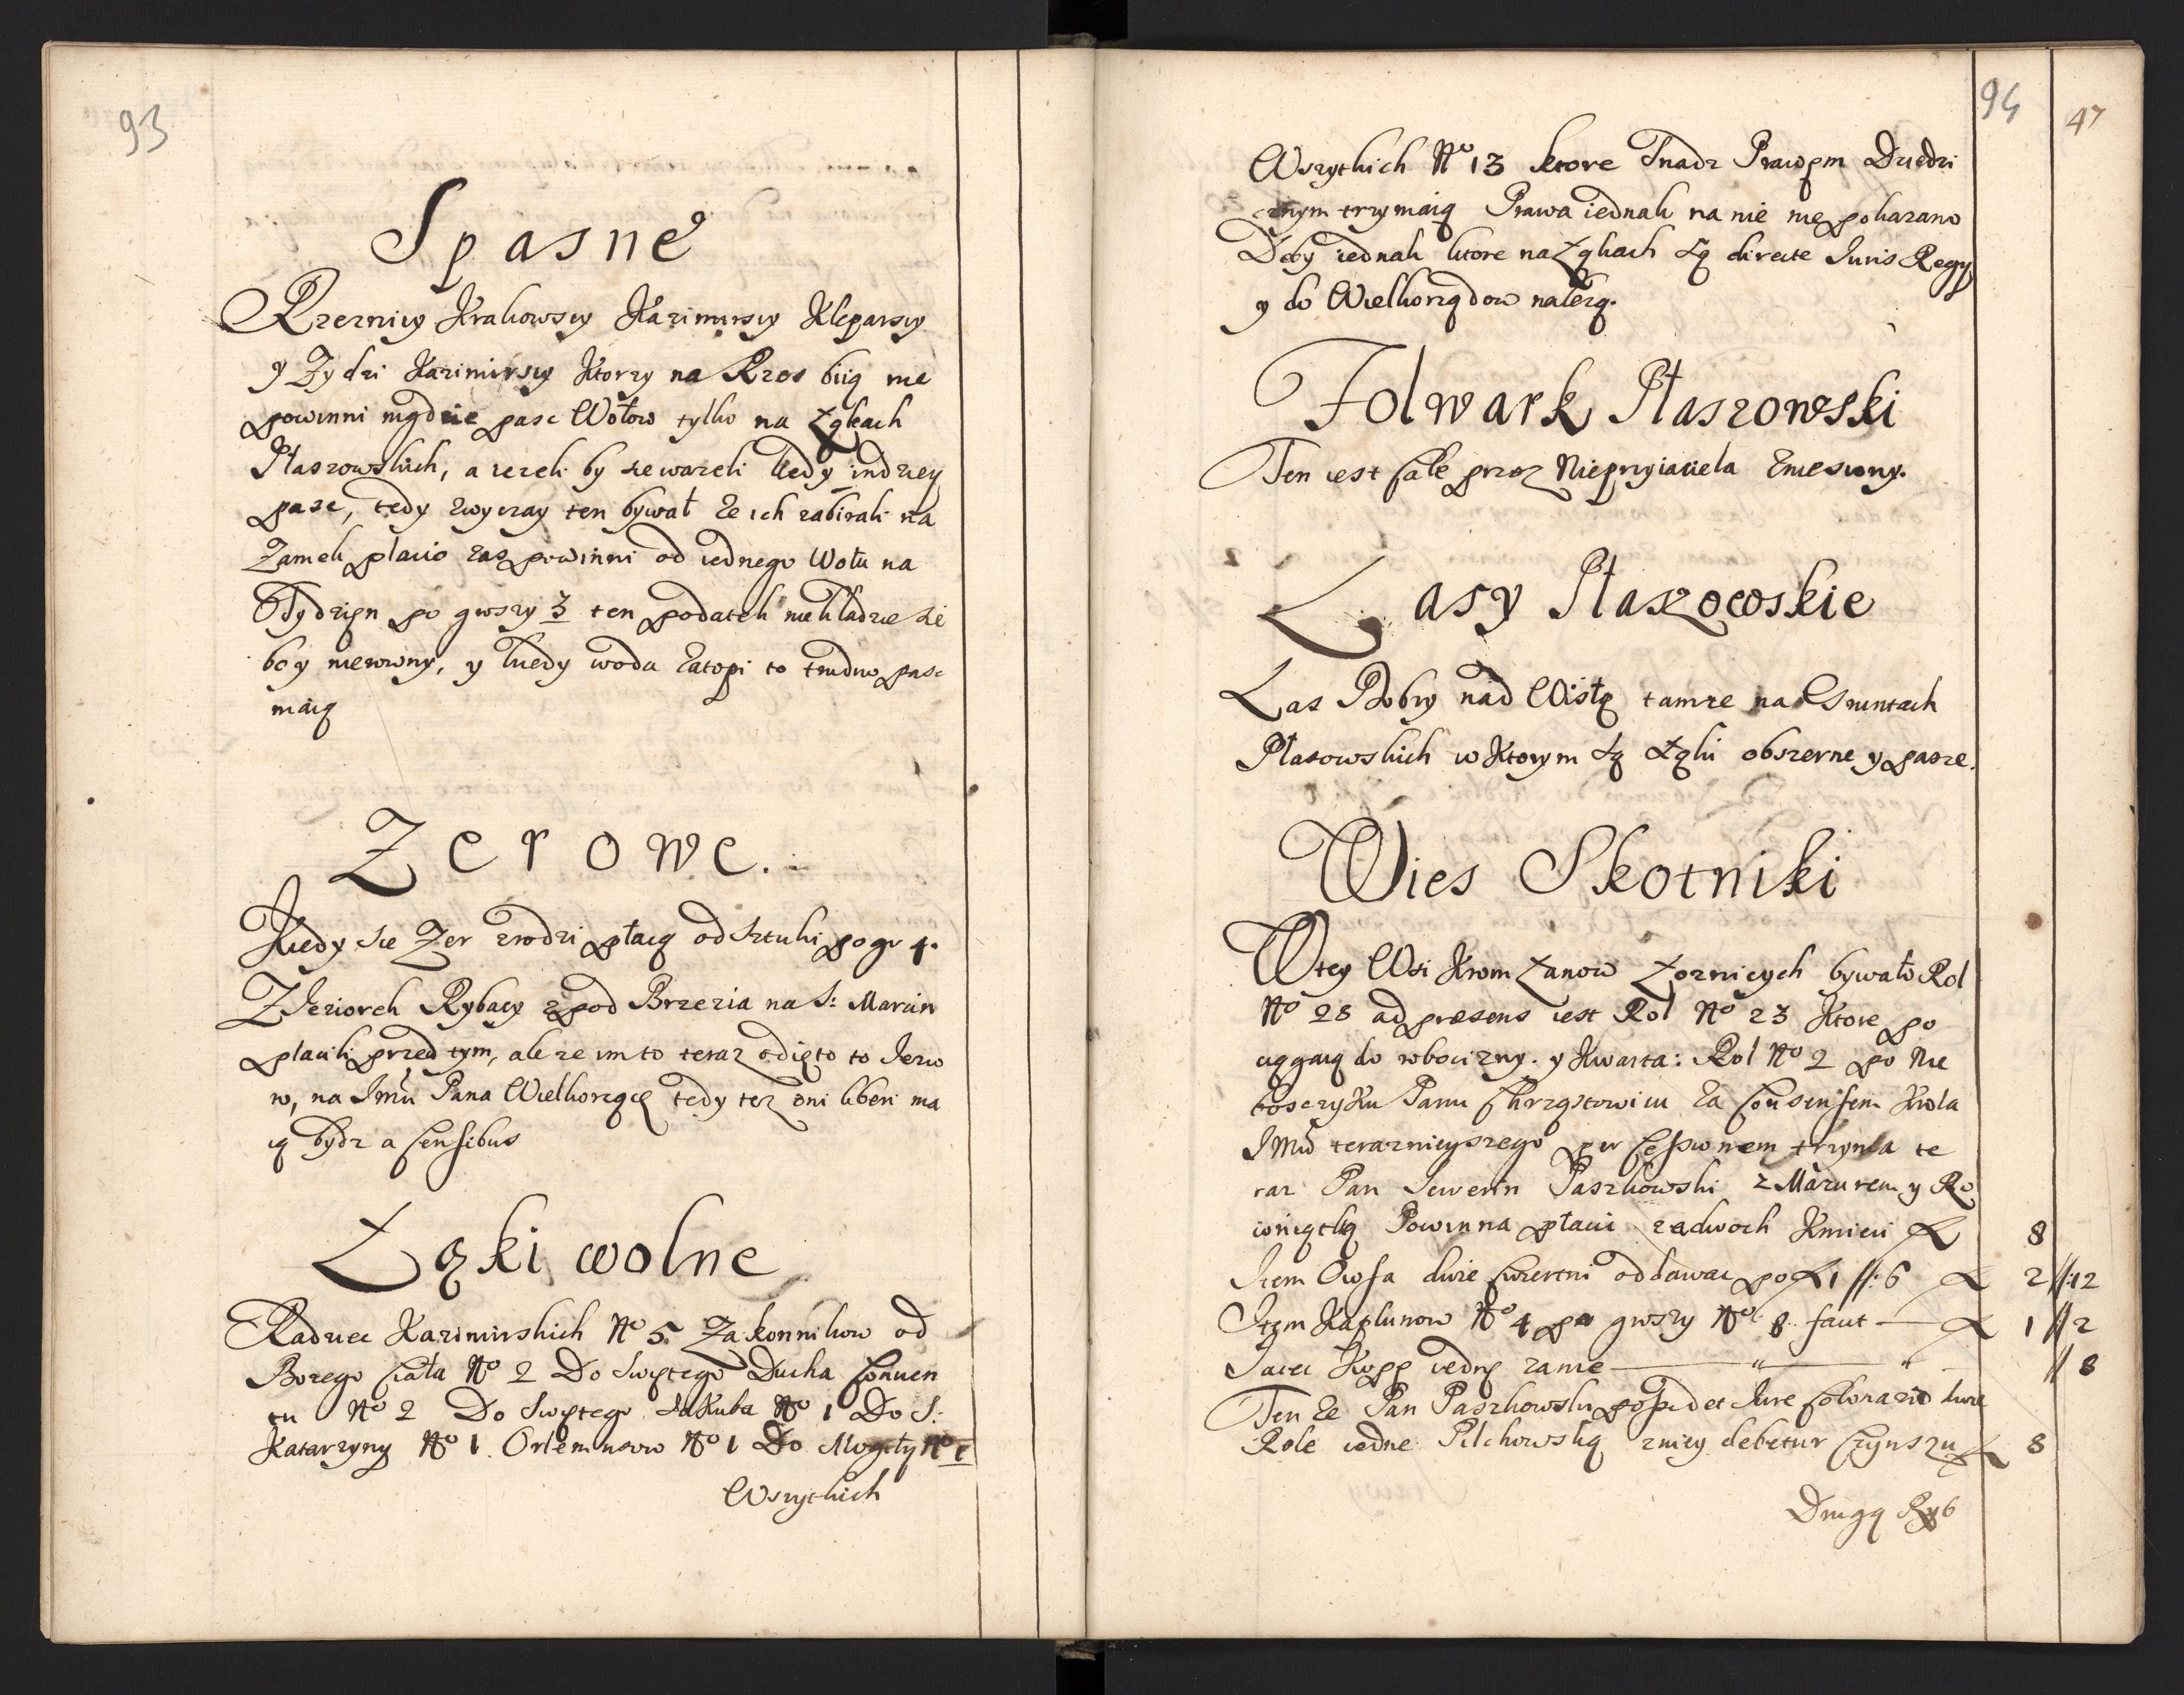 93
Spasne
Rzeznicy Krakowscy Kazimirscy Kleparscy
y Zydzi Kazimirscy Ktorzy na Rzos biią nie
powinni nigdzie pasc Wołow tylko na Łąkach
Płaszowskich, a iezeli by sie wazeli kiedy indziey
pasc, tedy zwyczay ten bywał ze ich zabirali na
Zamek placic zas powinni od iednego Wołu na
Tydzięn po groszy 3 ten podatek nie kładzie sie
bo y nierowny, y kiedy woda zatopi to trudno pasc
maią
Zerowe.
Kiedy sie Zer zrodzi płacą od sztuki po gr 4.
Z Jeziorek Rybacy z pod Brzezia na S: Marcin
placili przed tym, ale ze im to teraz odięto to Jezio
ro, na Jmci Pana Wielkorządcę tedy tez oni liberi ma
ią bydz a Censibus
Łąki wolne
Radziec Kazimirskich No 5. Zakonnikow od
Bozego Ciała No 2 Do Swiętego Ducha Conven
tu No 2 Do Swiętego Jakuba No 1 Do S:
Katarzyny No 1. Orleminsow No 1 Do Mogiły No 1
Wszytkich
94
47
Wszytkich No 13 ktore snadz Prawęm Dziedzi
cznym trzymaią Prawa iednak na nie nie pokazano
Dęby iednak ktore na Łąkach są directe Juris Regy
y do Wielkorządow nalezą.
Folwark Płaszowski
Ten iest cale przez Nieprzyiaciela zniesiony.
Lasy Płaszowskie
Las Dobry nad Wisłą tamze na Gruntach
Płasowskich w Ktorym są Łąki obszerne y pasze.
Wies Skotniki
W tey Wsi Krom Łanow Łozniczych bywało Rol
No 28 ad præsens iest Rol No 23 Ktore po
ciągaią do robocizny. y Kwarta: Rol No 2 po Nie
boszczyku Panu Chrząstowiciu za Consensem Krola
Jmci teraznieyszego per Cessionem trzyma te
raz Pan Sewerin Paszkowski z Mazurem y Ro
wniątką Powinna płacic z dwoch Kmieci ƒ 8
Item Owsa dwie Cwiertni oddawac po ƒ 1 //: 6 ƒ 2 //:12
Item Kapłunow No 4 po groszy No 8 faut — ƒ 1 // 2
Jaiec Kopę iednę zanie — " — " — // 8
Ten ze Pan Paszkowski possidet Jure Colonario dwie
Role iedne Pilchowską z niey debetur Czynszu ƒ 8
Drugą Ryb